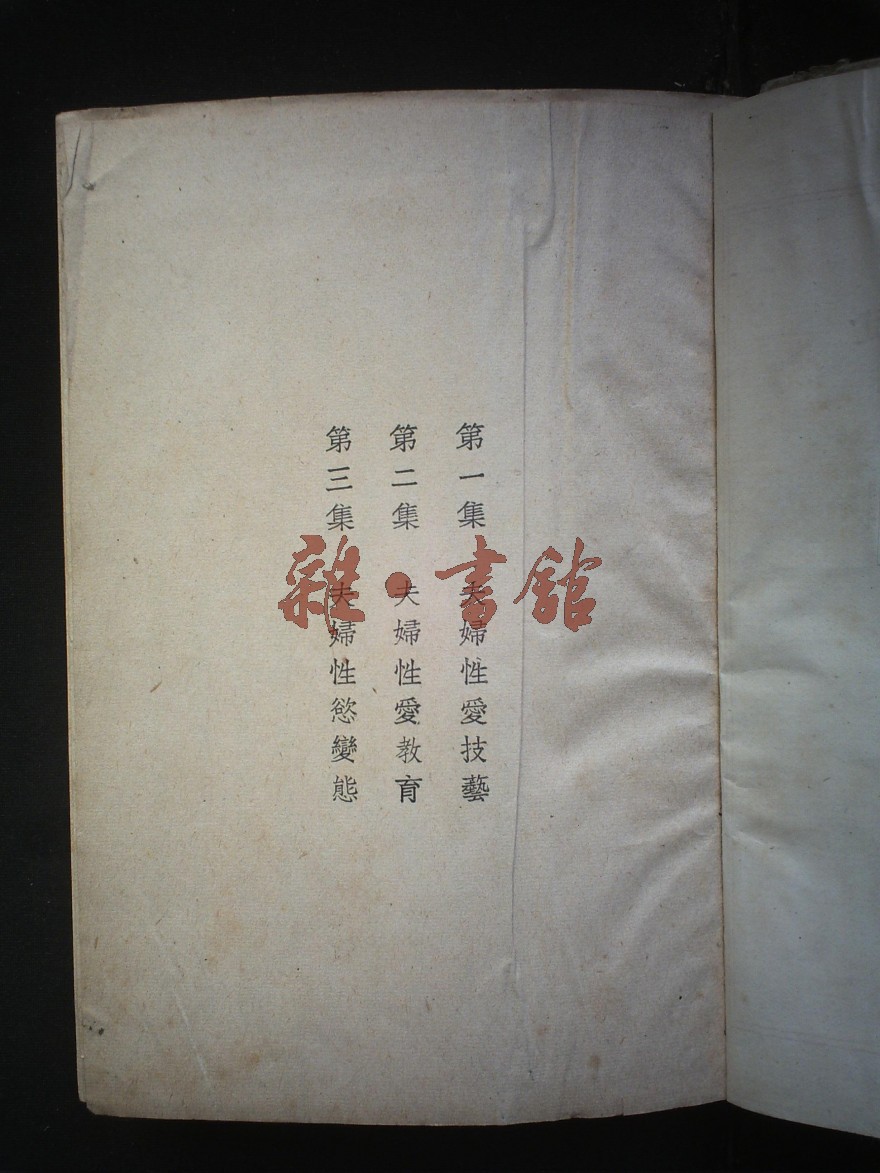 第一集 夫婦性愛技藝
第二集 夫婦性愛教育
第三集 夫婦性慾變態
雜·書館